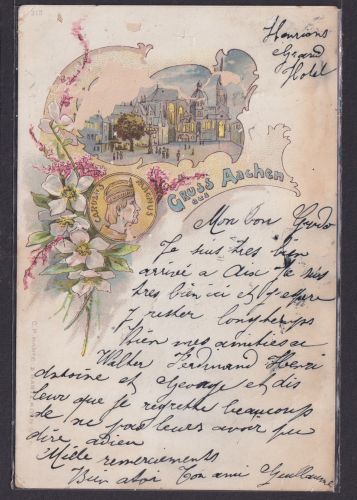 Henrions
Grand
Hotel
CARVLVS MAGNVS
Gruss aus Aachen
Mon bon Guido
Je suis très bien
arrivé a Aix Je suis
très bien ici et j'espere
y rester longtemps
Bien mes amitiés a
Walter Ferdinand Henri
Antoine et George et dis
leur que je regrette beaucoup
de ne pas leurs avoir pu
dire adieu
Mille remerciements
Bien a toi Ton ami Guillaume